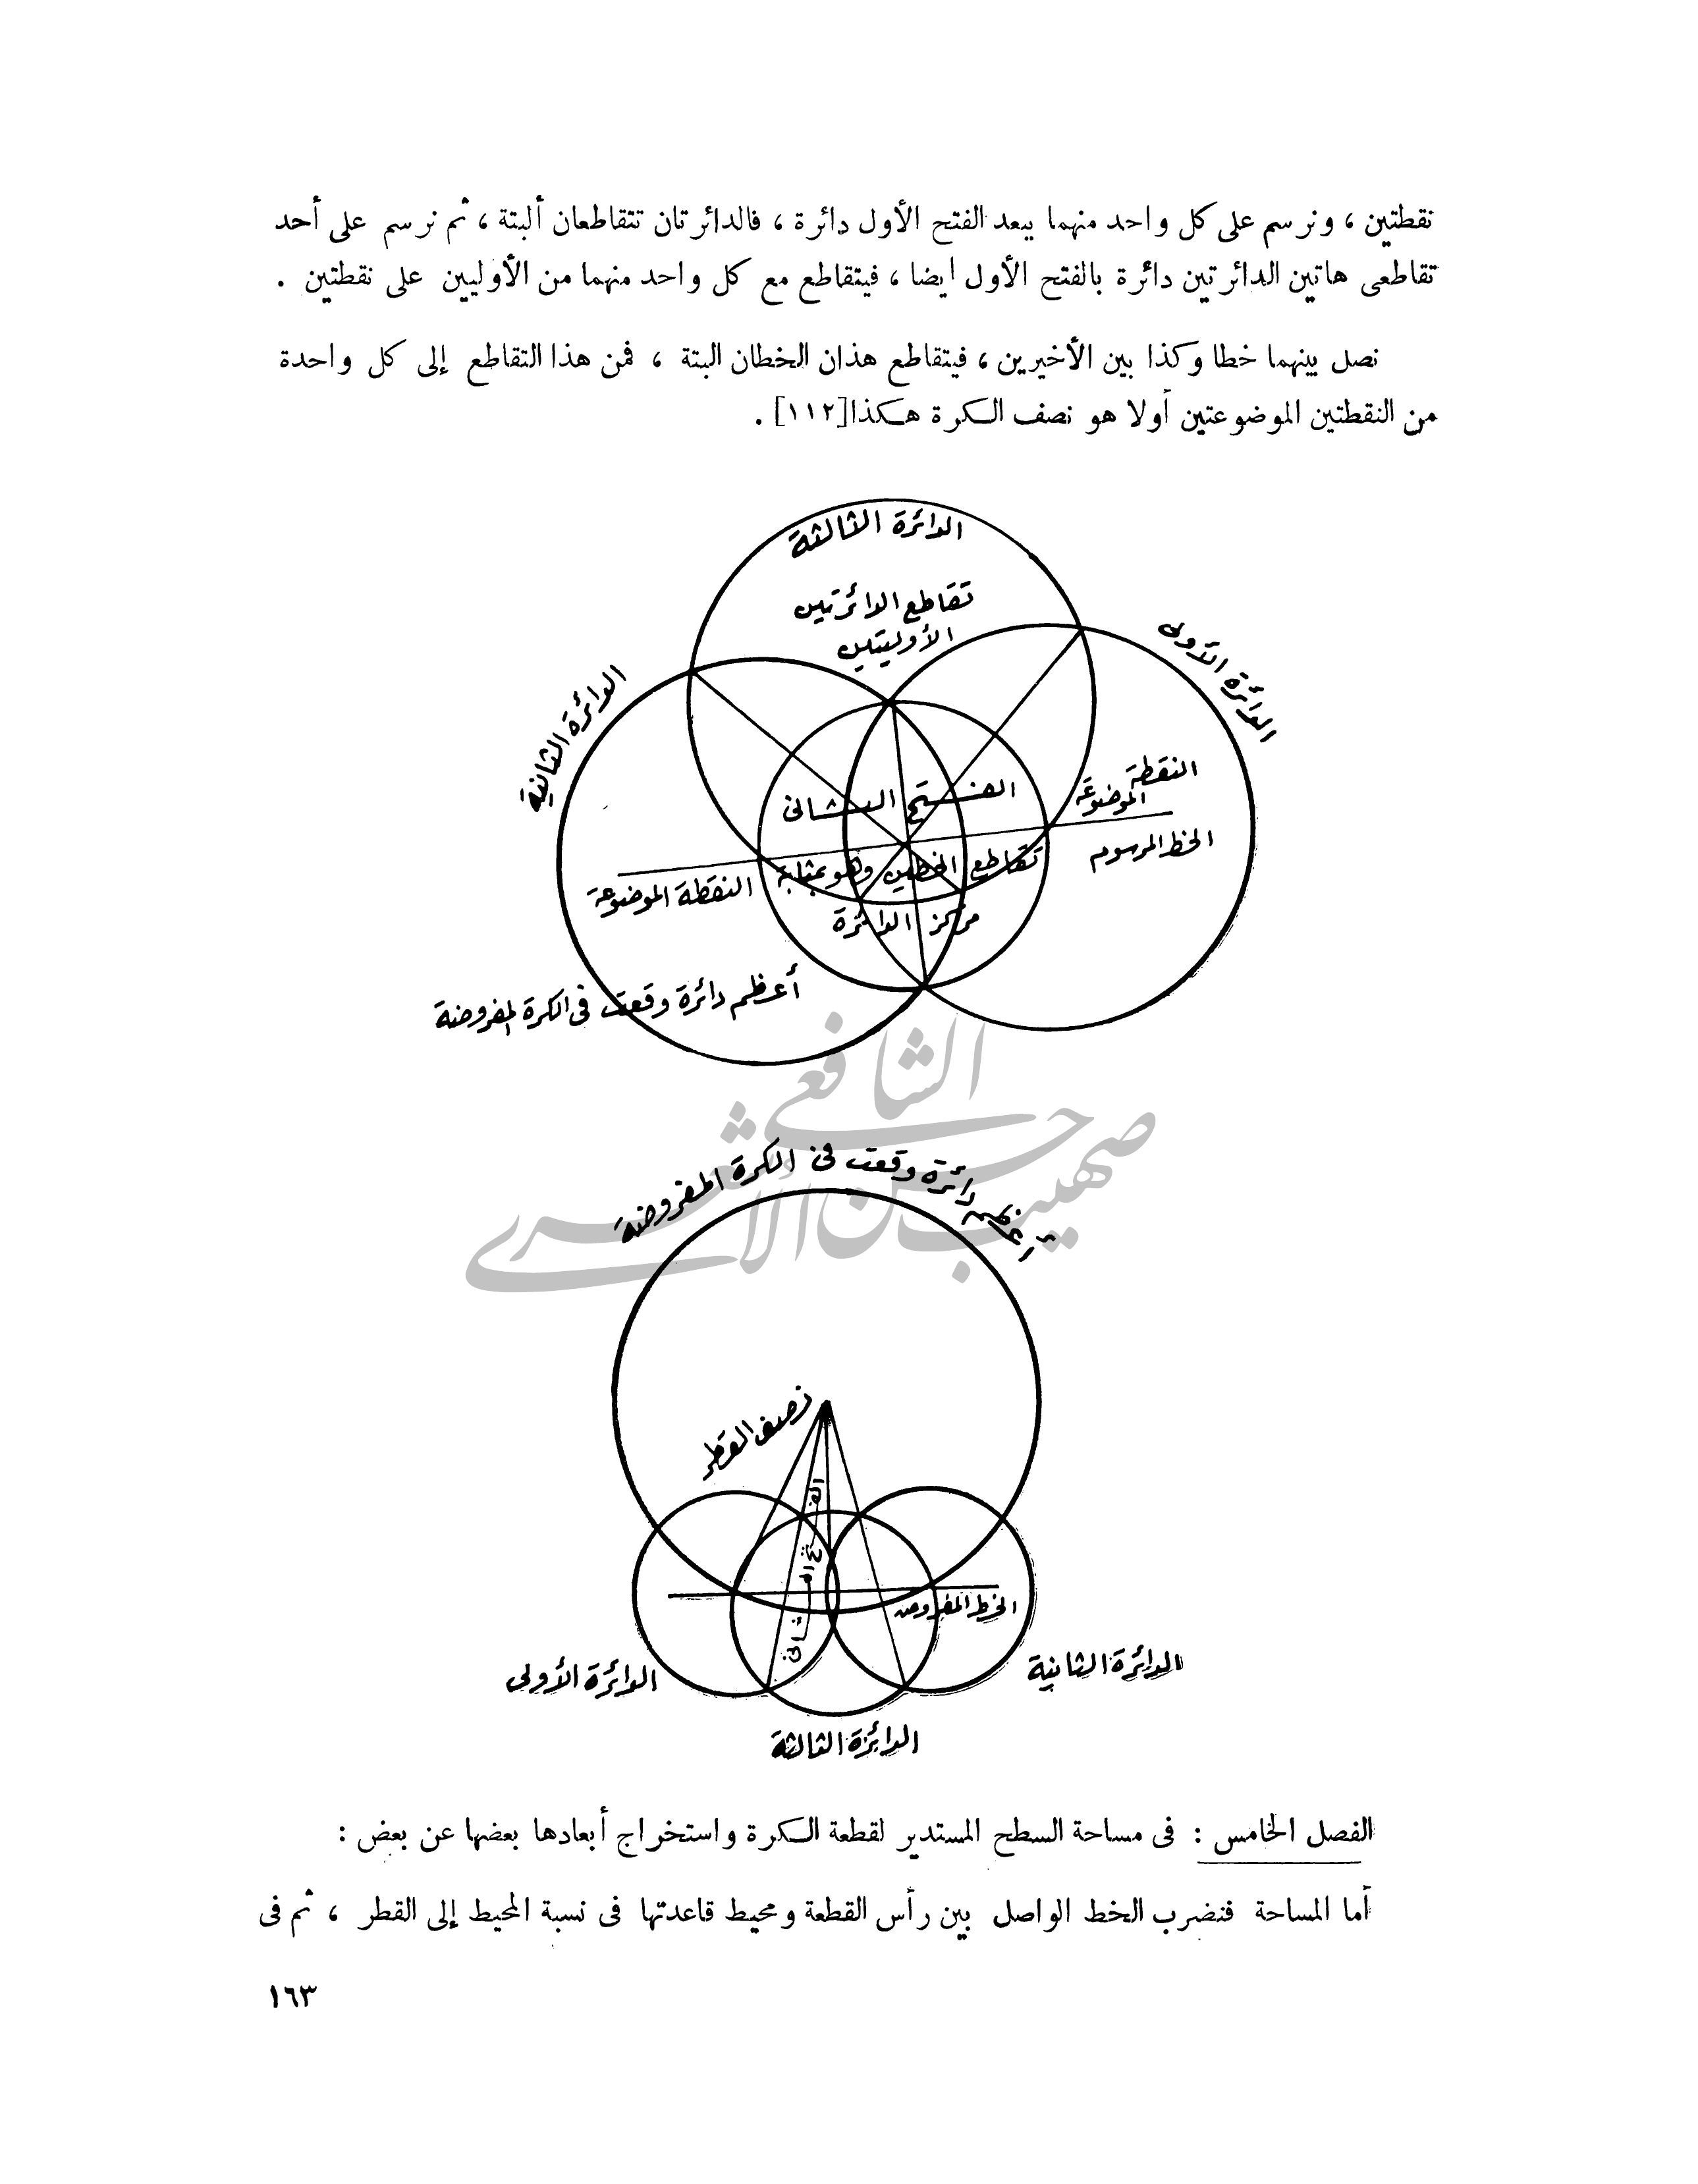 نقطتين ، ونرسم على كل واحد منهما ببعد الفتح الأول دائرة ، فالدائرتان تتقاطعان ألبتة ، ثم نرسم على أحد
تقاطعى هاتين الدائرتين دائرة بالفتح الأول أيضا ، فيتقاطع مع كل واحد منهما من الأوليين على نقطتين .
نصل بينهما خطا وكذا بين الأخيرين ، فيتقاطع هذان الخطان البتة ، فمن هذا التقاطع إلى كل واحدة
من النقطتين الموضوعتين أولا هو نصف الكرة هكذا[١١٢] .
الدائرة الثالثة
تقاطع الدائرتين
الأوليتين
الدائرة الأولى
الدائرة الثانية
النقطة
الموضوعة
الفتح الثانى
الخط المرسوم
تقاطع الخطين وهو بمثابة
النقطة الموضوعة
مركز الدائرة
أعظم دائرة وقعت فى الكرة المفروضة
الشافعي
صهيب حسن الأشعري
أعظم دائرة وقعت فى الكرة المفروضة
نصف القطر
الفتح الثانى
الخط المفروض
الدائرة الثانية
الدائرة الأولى
الدائرة الثالثة
الفصل الخامس : فى مساحة السطح المستدير لقطعة الكرة واستخراج أبعادها بعضها عن بعض :
أما المساحة فنضرب الخط الواصل بين رأس القطعة ومحيط قاعدتها فى نسبة المحيط إلى القطر ، ثم فى
١٦٣